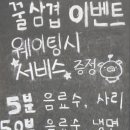 꿀삼겹 이벤트
웨이팅시
서비스 증정
5분 음료수, 사리
50분 음료수, 냉면